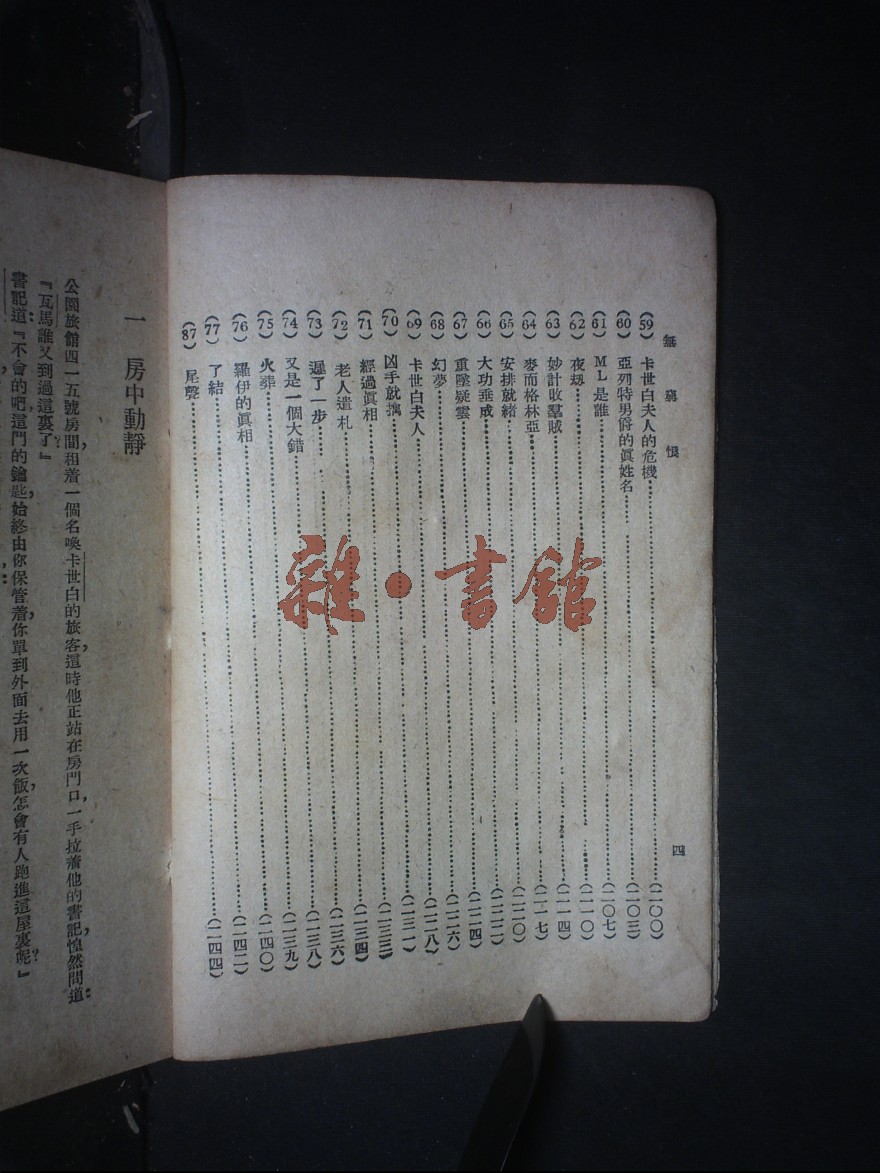 無窮恨
四
(59) 卡世白夫人的危機……(二〇〇)
(60) 亞列特男爵的眞姓名……(二〇三)
(61) ML是誰……(二〇七)
(62) 夜刼……(二一〇)
(63) 妙計收羣賊……(二一四)
(64) 麥而格林亞……(二一七)
(65) 安排就緒……(二二〇)
(66) 大功垂成……(二二二)
(67) 重墜疑雲……(二二四)
(68) 幻夢……(二二六)
(69) 卡世白夫人……(二二八)
(70) 凶手就擒……(二三一)
(71) 經過眞相……(二三三)
(72) 老人遺札……(二三四)
(73) 遲了一步……(二三六)
(74) 又是一個大錯……(二三八)
(75) 火葬……(二三九)
(76) 羅伊的眞相……(二四〇)
(77) 了結……(二四二)
(87) 尾聲……(二四四)
一 房中動靜
公園旅館四一五號房間，租着一個名喚卡世白的旅客，這時他正站在房門口，一手拉着他的書記，惶然問道：
『瓦馬誰又到過這裏了？』
書記道：『不會的吧，這門的鑰匙，始終由你保管着，你單到外面去用一次飯，怎會有人跑進這屋裏呢？』
雜·書館